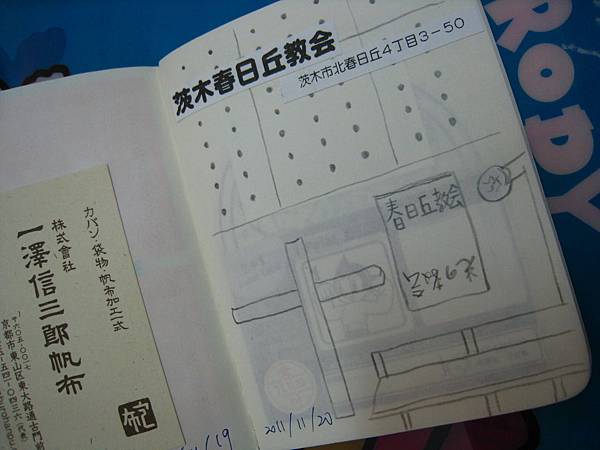 茨木春日丘教会
茨木市北春日丘4丁目3-50
春日丘教会
光の教会
2011/11/20
カバン・袋物・帆布加工一式
株式會社
一澤信三郎帆布
京都市東山区東大路通古門前
五四一-〇四三六(代表)
/19
RODY